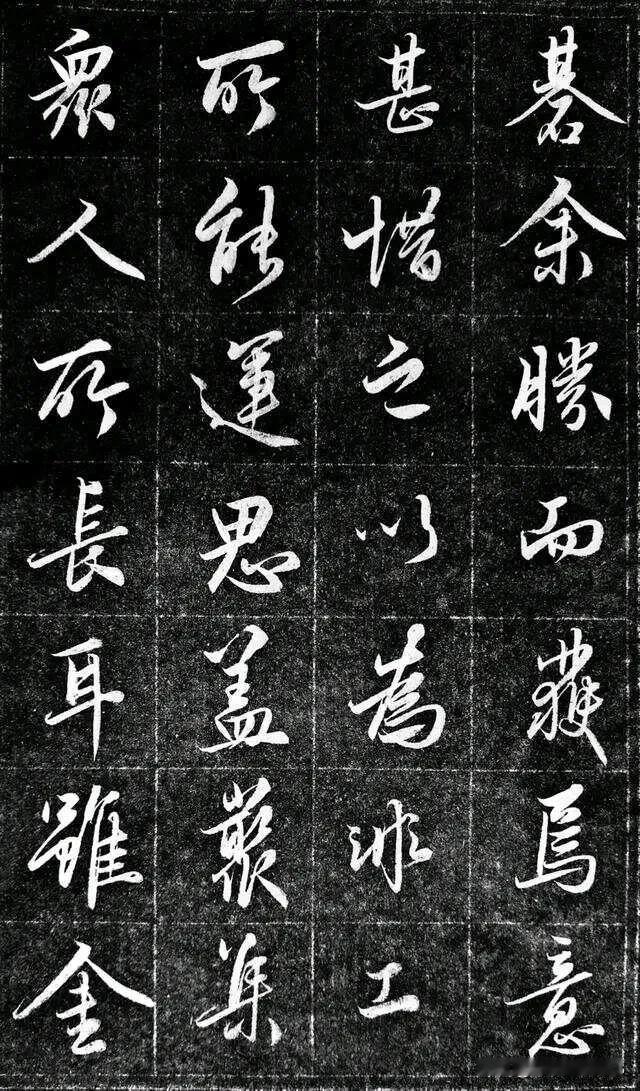 碁余勝而獲焉意
甚惜之以為非工
所能運思盖藂集
眾人所長耳雖金